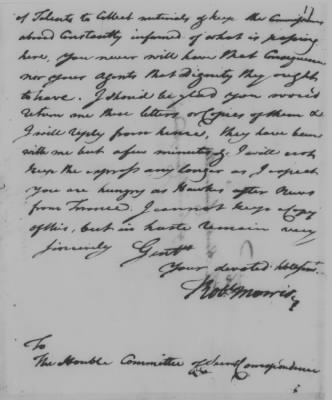 of Talents to Collect materials & keep the Commissrs
abroad Constantly informed of what is passing
here, you never will have that Consequence
nor your agents that dignity they ought
to have. I shou'd be glad you wou'd
return me these letters or Copies of them &
I will reply from hence, they have been
with me but a few minutes & I will not
keep the express any longer as I expect
you are hungry as Hawkes after News
from France. I cannot keep a Copy
of this, but in haste remain very
Sincerely Gentn
Your devoted hble servt
Robt Morris
To
The Honble Committee of Secret Correspondence